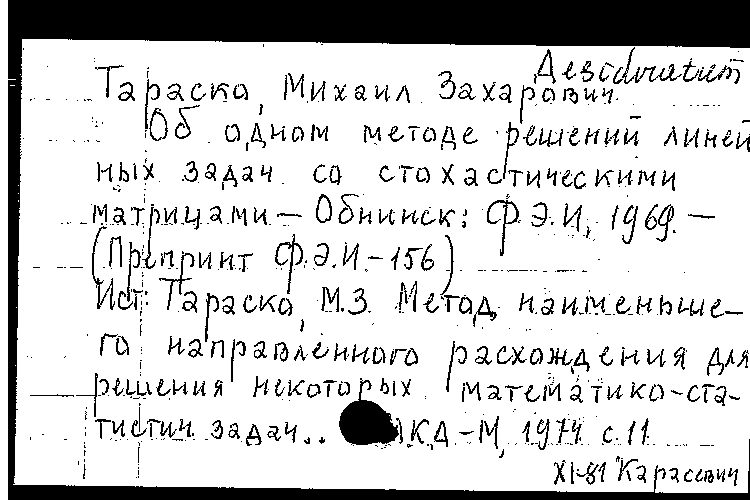 Desideratum
Тараско, Михаил Захарович.
Об одном методе решений линей
ных задач со стохастическими
матрицами – Обнинск: Ф.Э.И, 1969. –
(Препринт Ф.Э.И. – 156)
Ист: Тараско, М.З. Метод наименьше–
го направленного расхождения для
решения некоторых математико-ста-
тистич. задач.. АКД – М, 1974 с. 11
XI-81 Карасевич